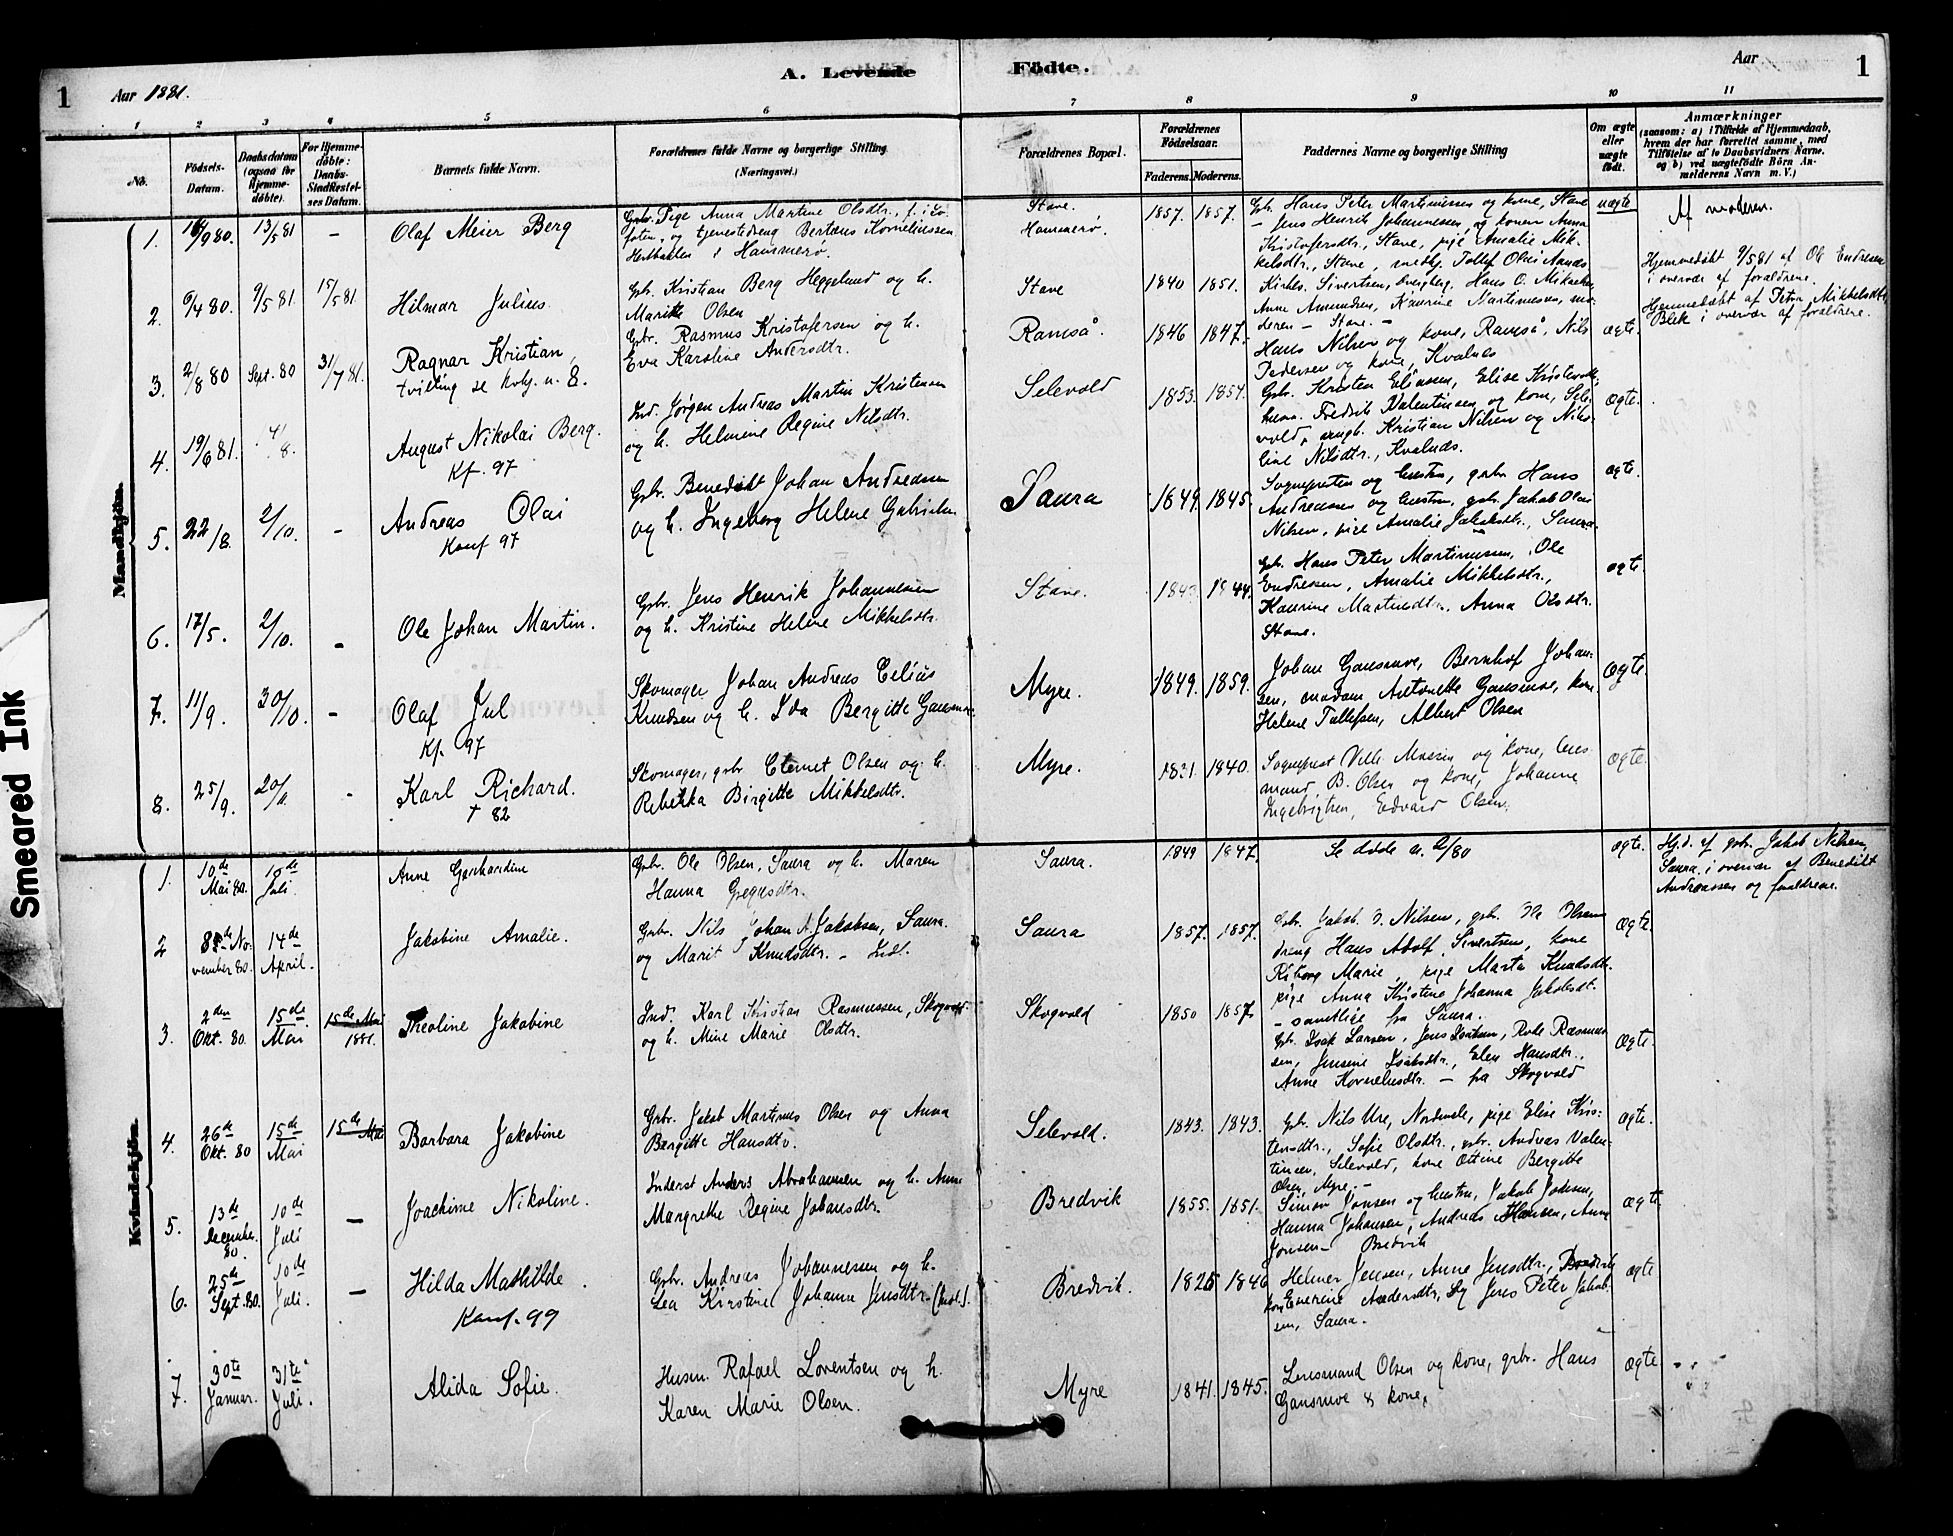 A. Levende Fødte.
1
Aar 1881.
Aar
1
1 2 3 4 5 6 7 8 9 10 11
No.
Fødsels-
Datum.
Daabsdatum
(ogsaa for
Hjemme-
døbte).
For Hjemme-
døbte:
Daabs-
Stadfæstel-
ses Datum.
Barnets fulde Navn.
Forældrenes fulde Navne og borgerlige Stilling
(Næringsvei.)
Forældrenes Bopæl.
Forældrenes
Fødselsaar.
Faderens. Moderens.
Faddernes Navne og borgerlige Stilling
Om ægte
eller
uægte
født.
Anmærkninger
(saasom: a) i Tilfælde af Hjemmedaab,
hvem der har forrettet samme, med
Tilføielse af to Daabsvidners Navne.
og b) ved uægtefødte Børn An-
melderens Navn m. V.)
Mandkjøn.
1. 13/5 81 - Olaf Meier Berg
Pige Anna Martine Olsdtr.,
foten, og tjenestedreng Bertæus Korneliussen
i Hammerø.
Stave.
Hammerø.
1857. 1857.
Gb. Hans Peter Martinussen og kone, Stave
- Jens Henrik Johannessen, og konen Anna
Kristofersdtr., Stave, pige Amalie Mik-
kelsdtr., Stave,
uægte
Af moderen.
2. 6/4 80 9/5 81. 15/5 81. Hilmar Julius.
Gb. Kristian Berg Heggelund og h.
Marithe Olsen
Stave
1840 1851.
Sivertsen, Hans O.
Anne Amundsen, Kaurine Martinussen, mo-
deren - Stave. -
Hjemmedøbt 9/5 81 af Ole Endresen
i overvær af forældrene.
3. 2/8 80 Sept. 80 31/7 81. Ragnar Kristian,
tvilling se kvkj. n. 8.
Gbr. Rasmus Kristofersen og h.
Eva Karoline Andersdtr.
Ramså.
1846 1847.
Hans Nilsen og kone, Ramså, Nils
Pedersen og kone, Kvalnes
ægte
Hjemmedøbt af Peter Mikkelsdtr.
Blek i overvær af forældrene.
4. 19/6 81. 4/8. August Nikolai Berg.
Kf. 97
Ind. Jørgen Andreas Martin Kristensen
og h. Helmine Regine Nilsdtr.
Selevold
1853. 1854.
Gbr. Kristen Eliassen, Elise
Fredrik Valentinsen og kone, Sele-
vold, Kristian Nilsen og Niko-
line Nilsdtr., Kvalnæs.
ægte.
5. 22/8. 2/10. - Andreas Olai
Konf 97
Gbr. Benedikt Johan Andreasen
og h. Ingeberg Helene Gabrielsen
Saura
1849. 1845.
Sognepresten og hustru, gbr. Hans
Andreasen og hustru, gbr. Jakob Olai
Nilsen, pige Amalie Jakobsdtr., Saura.
ægte.
6. 17/5. 2/10. - Ole Johan Martin.
Gbr. Jens Henrik Johannesen
og h. Kristine Helene Mikkelsdtr.
Stave.
1844.
Gbr. Hans Peter Martinussen, Ole
Endresen, Amalie Mikkelsdtr.,
Kaurine Martinsdtr., Anna Olsdtr.
Stave.
ægte.
7. 11/9. 30/10. - Olaf Jul
Kf. 97
Skomager Johan Andreas Celius
Knudsen og h. Ida Bergitte Gausmoe.
Myre.
1849. 1859.
Johan Gausmoe, Bernhof Johan-
sen, madam Antonette Gausmoe, kone
Helene Tollefsen, Albert Olsen
ægte
8. 25/9. - Karl Richard.
† 82
Skomager, gbr. Clemet Olsen og h.
Rebekka Birgitte Mikkelsdtr.
Myre.
1831. 1840.
Sogneprest Vilh. og kone, lens
mand B. Olsen og kone, Johanne
Ingebrigtsen, Edvard Olsen.
ægte.
Kvindekjøn.
1. 10de Mai 80. 10de Juli Anne Gerhardine
Gbr. Ole Olsen, Saura og h. Maren
Hanna Gregusdtr.
Saura.
1849 1847.
Se døde n. 2/80
ægte.
Hj.d. af gbr. Jakob Nilsen,
Saura i overvær af Benedikt
Andreassen og forældrene.
2 8de No-
vember 80. 14de April. Jakobine Amalie.
Gbr. Nils Johan A. Jakobsen, Saura.
og Marit J Knudsdtr. - Ind.
Saura
1857. 1857.
Gbr. Jakob O. Nilsen, gbr. Ole Olsen
dreng Hans Adolf Sivertsen, kone
Marie, pige Marta Knudsdtr.
pige Anna Kristine Johanna Jakobsdt.
- samtlige fra Saura.
ægte.
3. 2den Okt. 80. 15de Mai 15de Mai 1881. Theoline Jakobine
Ind. Karl Kristian Rasmussen, Skogvold
og h. Mine Marie Olsdtr.
Skogvold
1850 1857.
Gb. Isak Larsen, Jens Isaksen, Rasmus-
sen, Jensine Isaksdtr., Elen Hansdtr.,
Anne Korneliusdtr. - fra Skogvold
ægte.
4. 26de Okt. 80 15de Mai 15de Mai Barbara Jakobine
Gbr. Jakob Martinus Olsen og Anna
Bergitte Hansdtr.
Selevold.
1843. 1843.
Gb. Nils Ure, Nordmele, pige Eline Kris-
tensdtr., Sofie Olsdtr., gbr. Andreas Valen-
tinsen, Selevold, kone Ottine Bergitte
Olsen, Myre. -
ægte.
5. 13de December 80. 10de Juli - Joachime Nikoline.
Inderst Anders Abrahamsen og h. Anne
Margrethe Regine Johansdtr.
Bredvik
1855. 1851.
Simon Jonsen og hustru, Jakob
Hanna Johansen, Andreas Hansen, Anne
Jonsen - Bredvik
ægte.
6. 25de Sept. 80. 10de Juli. - Hilda Mathilde.
Konf. 99
Gbr. Andreas Johannesen og h.
Lea Kirstine Johanna Jensdtr.
Bredvik.
1825 1846
Helmer Jensen, Anne Jensdtr., Bredvik
Everine Andersdtr., Jens Peter Jakob-
sen, Saura.
ægte
7. 30te Januar. 31te Juli. Alida Sofie.
Husm. Rafael Lorentsen og h.
Karen Marie Olsen.
Myre
1841. 1845.
Lensmand Olsen og kone, gbr. Hans
Gausmoe & kone,
ægte
Smeared Ink